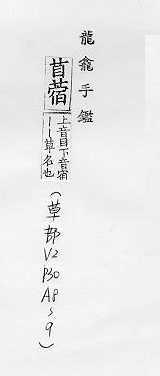 龍龕手鑑
苜蓿
上音目下音宿
||草名也
(草部V2P30A8~9)